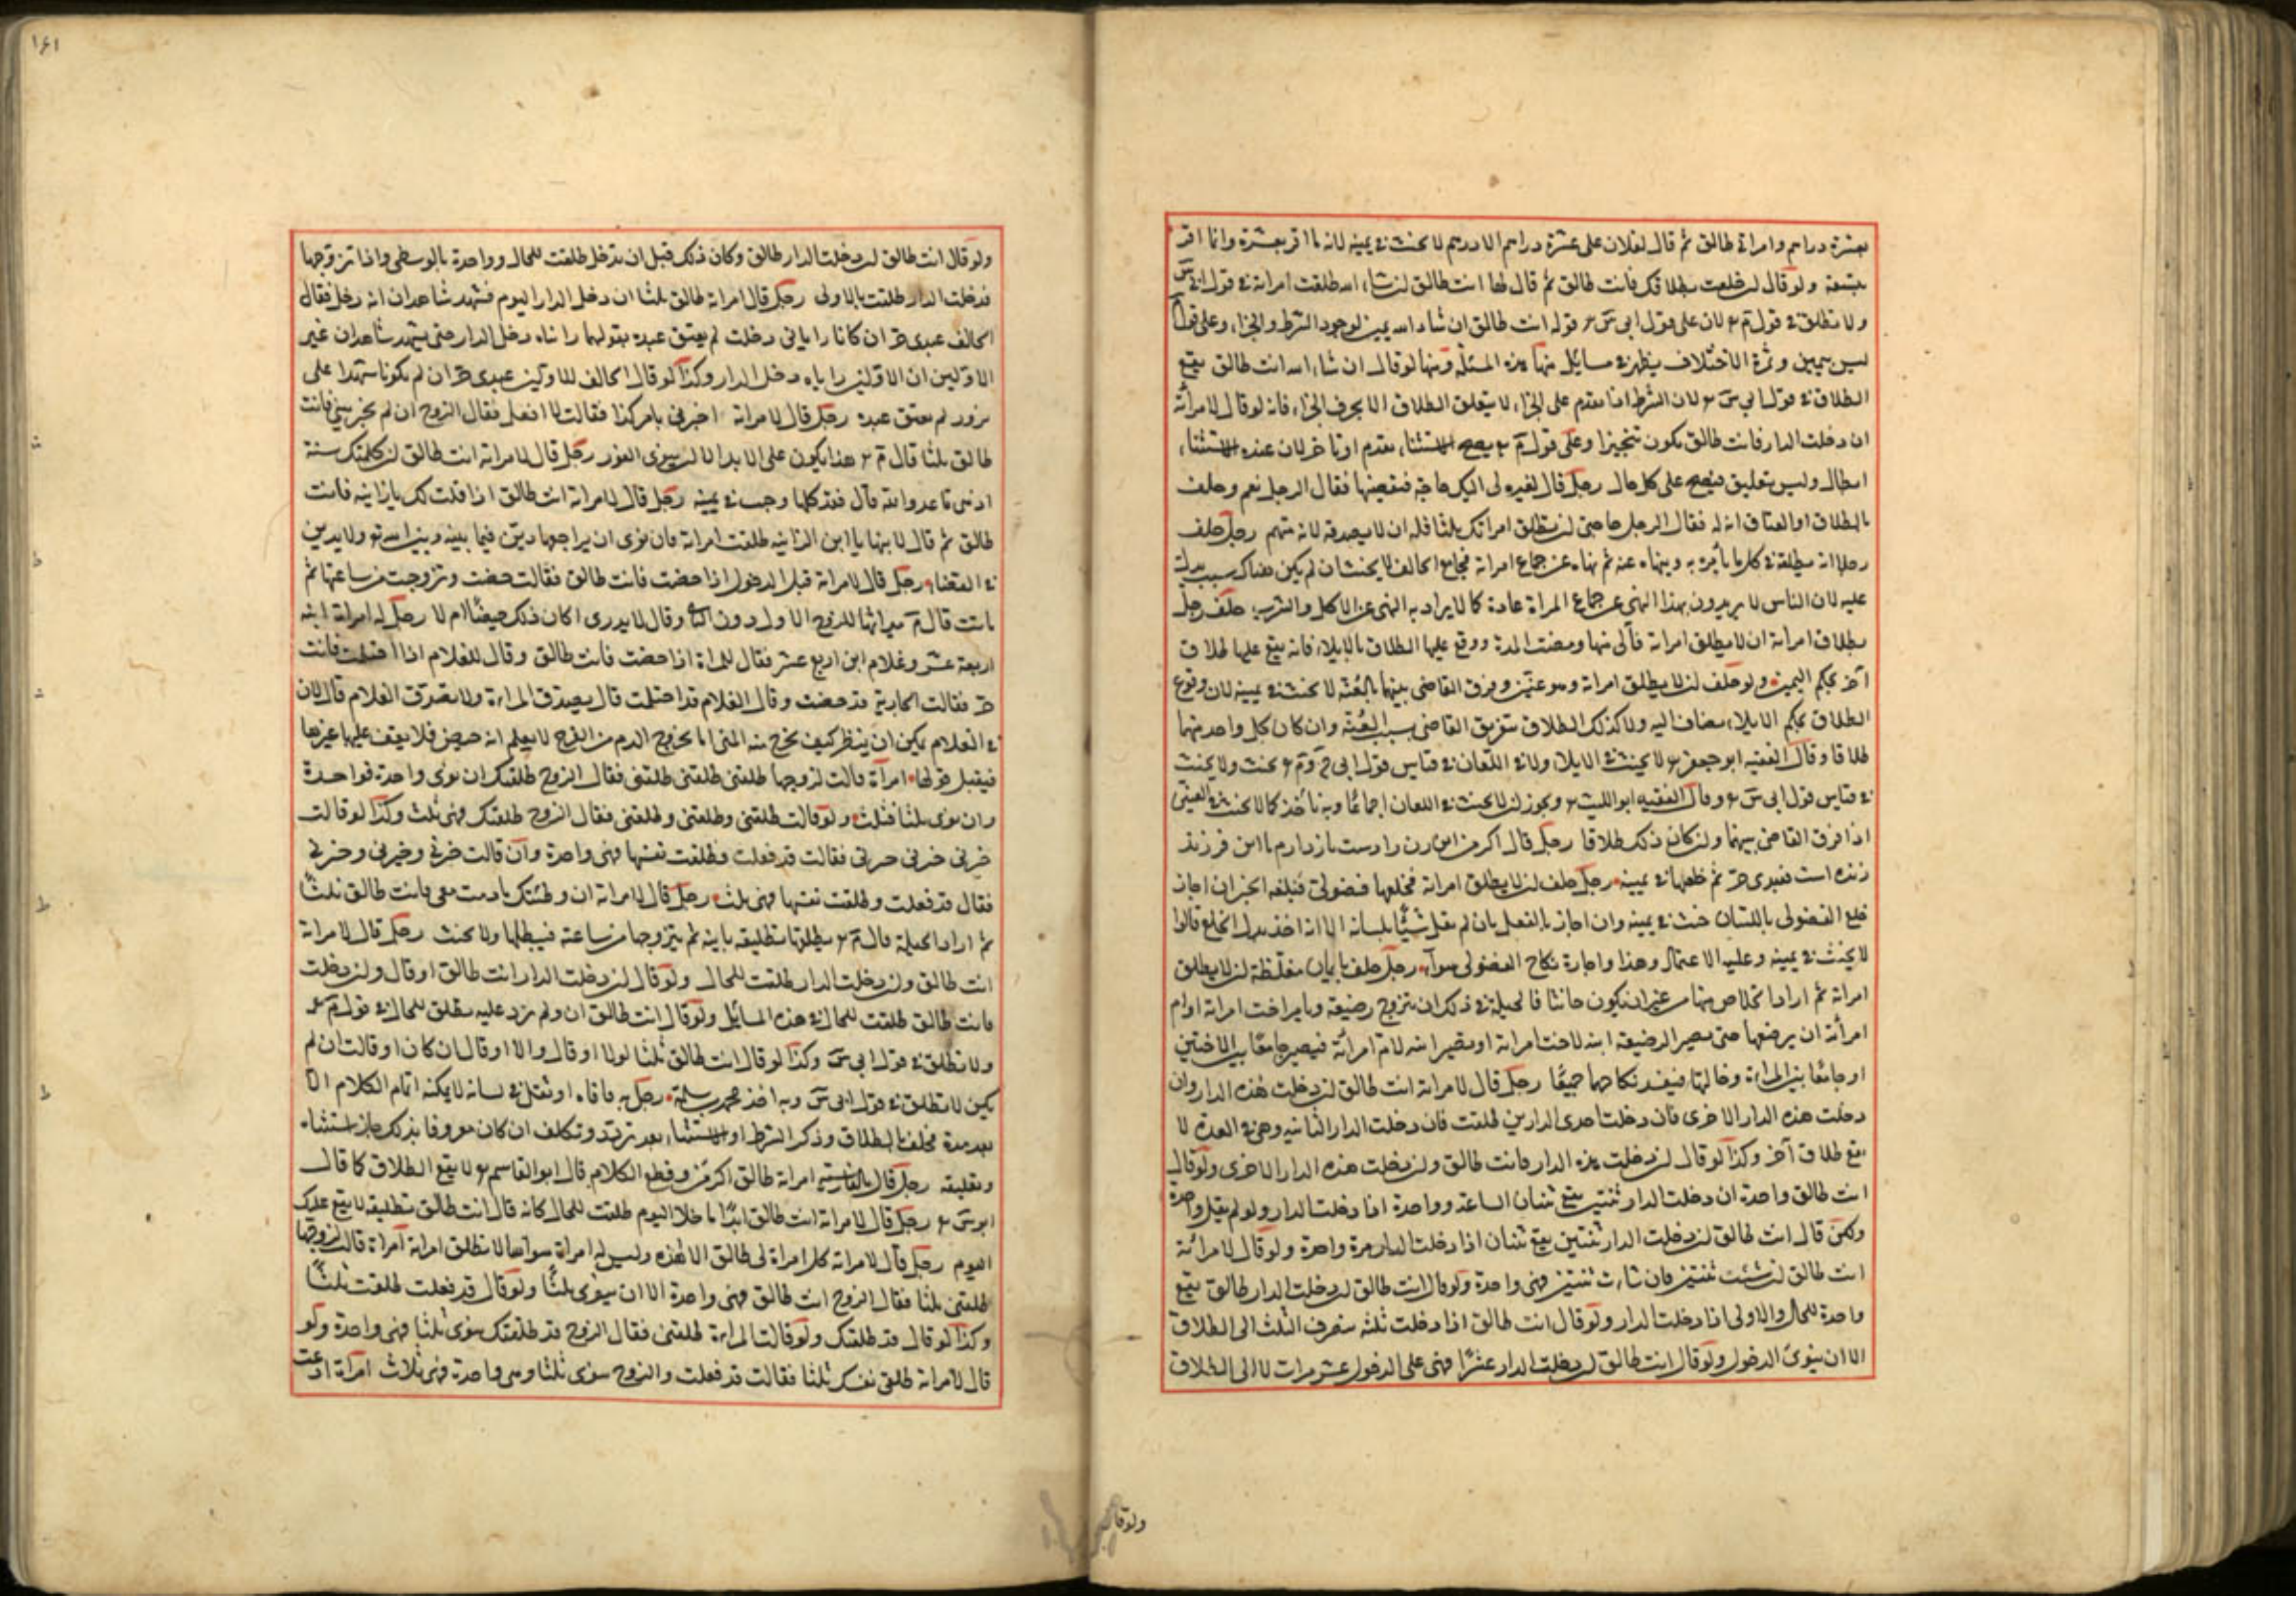 بعشرة دراهم وامراتي طالق ثم قال لفلان على عشرة دراهم الا درهم لا يحنث في يمينه لانه ما اقر بعشرة وانما اقر
بتسعة ولو قال ان حلفت بطلاقك فانت طالق ثم قال لها انت طالق ان شاء الله طلقت امراته في قول ابي س
ولا تطلق في قول م لان على قول ابي س قوله انت طالق ان شاء الله يمين لوجود الشرط والجزاء وعلى قول م
ليس بيمين وثمرة الاختلاف يظهر في مسايل منها هذه المسئلة ومنها لو قال ان شاء الله انت طالق يقع
الطلاق في قول ابي س لان الشرط اذا تقدم على الجزاء لا يتعلق الطلاق الا بحرف الجزاء فانه لو قال لامرأته
ان دخلت الدار فانت طالق يكون تنجيزا وعلى قول م يصح الاستثناء تقدم او تاخر لان عنده الاستثناء
ابطال وليس بتعليق فيصح على كل حال رجل قال لغيره لى اليك حاجة فتقضيها فقال الرجل نعم وحلف
بالطلاق او العتاق انه له فقال الرجل حاجتي ان تطلق امراتك ثلثا فله ان لا يصدقه لانه متهم رجل حلف
رجلا انه يطيعه في كل ما يأمره به وينهاه عنه ثم نهاه عن جماع امراته فجامع الحالف لا يحنث ان لم يكن هناك سبب يدل
عليه لان الناس لا يريدون بهذا النهى عن جماع المراة عادة كما لا يراد به النهى عن الاكل والشرب حلف رجل
بطلاق امراته ان لا يطلق امراته فآلى منها ومضت المدة ووقع عليها الطلاق بالايلاء فانه يقع عليها طلاق
آخر بحكم اليمين ولو حلف ان لا يطلق امراته وهو عنين وفرق القاضي بينهما بالعنة لا يحنث في يمينه لان وقوع
الطلاق بحكم الايلاء مضاف اليه ولا كذلك الطلاق بتفريق القاضي بسبب العنة وان كان كل واحد منهما
طلاقا وقال الفقيه ابو جعفر لا يحنث في الايلاء ولا في اللعان في قياس قول ابي ح وم يحنث ولا يحنث
في قياس قول ابي س وقال الفقيه ابو الليث ويجوز ان لا يحنث في اللعان اجماعًا وبه نأخذ كما لا يحنث في العنين
اذا فرق القاضي بينهما وان كان ذلك طلاقا رجل قال اكر من اين زن را دست بازدارم تا اين فرزند
زنده است فعبدى حر ثم خلعها في يمينه رجل حلف ان لا يطلق امراته فخلعها فضولي فبلغه الخبر ان اجاز
خلع الفضولى باللسان حنث في يمينه وان اجاز بالفعل بان لم يقل شيئًا بلسانه الا انه اخذ بدل الخلع قالوا
لا يحنث في يمينه وعليه الاعتماد وهذا واجازة نكاح الفضولى سواء رجل حلف بايمان مغلظة ان لا يطلق
امراته ثم اراد الخلاص منها من غير ان يكون حانثا فالحيلة في ذلك ان يتزوج رضيعة ويامر اخت امراته او ام
امرأته ان يرضعها حتى تصير الرضيعة ابنة لاخت امراته او تصير ابنه لام امرأته فيصير جامعًا بين الاختين
او جامعًا بين المراة وخالتها فيفسد نكاحهما جميعًا رجل قال لامراته انت طالق ان دخلت هذه الدار وان
دخلت هذه الدار الاخرى فان دخلت احدى الدارين طلقت فان دخلت الدار الثانيه وهي في العدة لا
يقع طلاق آخر وكذا لو قال ان دخلت هذه الدار فانت طالق وان دخلت هذه الدار الاخرى ولو قال
انت طالق واحدة ان دخلت الدار ثنتين يقع ثنتان الساعة وواحدة اذا دخلت الدار ولو لم يقل واحدة
ولكن قال انت طالق ان دخلت الدار ثنتين يقع ثنتان اذا دخلت الدار مرة واحدة ولو قال لامرأته
انت طالق ان شئت ثنتين فان شاءت ثنتين فهي واحدة ولو قال انت طالق ان دخلت الدار طالق يقع
واحدة للحال والاولى اذا دخلت الدار ولو قال انت طالق اذا دخلت ثلثه ينصرف الثلث الى الطلاق
الا ان ينوي الدخول ولو قال انت طالق ان دخلت الدار عشرًا فهي على الدخول عشر مرات لا الى الطلاق
ولو قا
١٦١
ولو قال انت طالق ان دخلت الدار طالق وكان ذلك قبل ان تدخل طلقت للحال وواحدة بالوسطى واذا تزوجها
فدخلت الدار طلقت بالاولى رجل قال امراته طالق ثلثا ان دخل الدار اليوم فشهد شاهدان انه دخل فقال
الحالف عبدى حر ان كانا راياني دخلت لم يعتق عبده بقولهما راناه دخل الدار حتى يشهد شاهدان غير
الاولين ان الاولين راياه دخل الدار وكذا لو قال الحالف للاولين عبدى حر ان لم يكونا شهدا على
بزور لم يعتق عبده رجل قال لامراته اخبرني بامر كذا فقالت لا افعل فقال الزوج ان لم تخبريني فانت
طالق ثلثا قال م هذا يكون على الابد الا ان ينوى الفور رجل قال لامراته انت طالق ان كلمتك سنة
اذهبي يا عدوة الله قال فقد كلمها وحنث في يمينه رجل قال لامراته انت طالق اذا قلت لك يا زانيه فانت
طالق ثم قال لابنها يا ابن الزانيه طلقت امراته فان نوى ان يراجهها دين فيما بينه وبين الله تع ولا يدين
في القضاء رجل قال لامراته قبل الدخول اذا حضت فانت طالق فقالت حضت وتزوجت من ساعتها ثم
ماتت قال م ميراثها للزوج الاول دون الثاني وقال لا يدرى اكان ذلك حيضًا ام لا رجل له امراة ابنه
اربعة عشر وغلام ابن اربع عشر فقال للمراة اذا حضت فانت طالق وقال للغلام اذا احتلمت فانت
حر فقالت الجارية قد حضت وقال الغلام قد احتلمت قال يصدق المراة ولا يصدق الغلام قال لان
في الغلام يمكن ان ينظر كيف يخرج منه المنى اما بخروج الدم من الفرج لا يعلم انه حيض فلا يقف عليها غيرها
فيقبل قولها امرأة قالت لزوجها طلقني طلقني طلقني فقال الزوج طلقتك ان نوى واحدة فواحدة
وان نوى ثلثا فثلث ولو قالت طلقني وطلقني وطلقني فقال الزوج طلقتك فهي ثلث وكذا لو قالت
خيرني خيرني خيرني فقالت قد فعلت وطلقت نفسها فهي واحدة وان قالت خيرني وخيرني وخيرني
فقال قد فعلت وطلقت نفسها فهي ثلث رجل قال لامراته ان وطئتك ما دمت معي فانت طالق ثلثًا
ثم اراد الحيلة قال م يطلقها تطليقه باينه ثم يتزوجها من ساعته فيطاها ولا يحنث رجل قال لامراته
انت طالق وان دخلت الدار طلقت للحال ولو قال ان دخلت الدار انت طالق او قال وان دخلت
فانت طالق طلقت للحال في هذه المسايل ولو قال انت طالق ان ولم يزد عليه تطلق للحال في قول م
ولا تطلق في قول ابي س وكذا لو قال انت طالق ثلثا لولا او قال والا او قال ان كان او قالت ان لم
يكن لا تطلق في قول ابي س وبه اخذ محمد بن سلمة رجل به فافاه او ثقل في لسانه لا يمكنه اتمام الكلام الا
بعد مدة فحلف بالطلاق وذكر الشرط او الاستثناء بعد تردد وتكلف ان كان معروفا بذلك جاز استثناءه
وتعليقه رجل قال بالفارسية امراته طالق اكر من وقطع الكلام قال ابو القاسم لا يقع الطلاق كما قال
ابو س رجل قال لامراته انت طالق ابدًا ما خلا اليوم طلقت للحال كانه قال انت طالق تطليقه لا يقع عليك
اليوم رجل قال لامراته كل امراة لى طالق الا هذه وليس له امراة سواها لا تطلق امراته امراة قالت لزوجها
طلقني ثلثا فقال الزوج انت طالق فهي واحدة الا ان ينوى ثلثًا ولو قال قد فعلت طلقت ثلثًا
وكذا لو قال قد طلقتك ولو قالت المراة طلقني فقال الزوج قد طلقتك ينوى ثلثا فهي واحدة ولو
قال لامراته طلقي نفسك ثلثا فقالت قد فعلت والزوج ينوى ثلثا وهي واحدة فهي ثلاث امراة ادعت